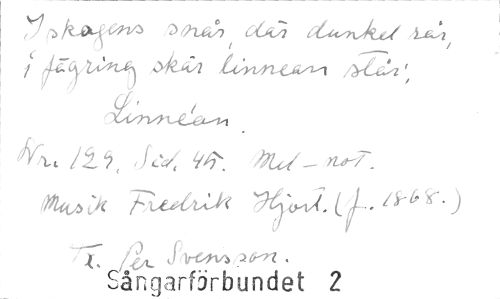 I skogens snår, där dunkel rår,
i fägring skär linnean står,
Linnéan.
Nr. 129. Sid. 45. Mel-not.
Musik Fredrik Hjort. (f. 1868.)
Tx. Per Svensson.
Sångarförbundet 2